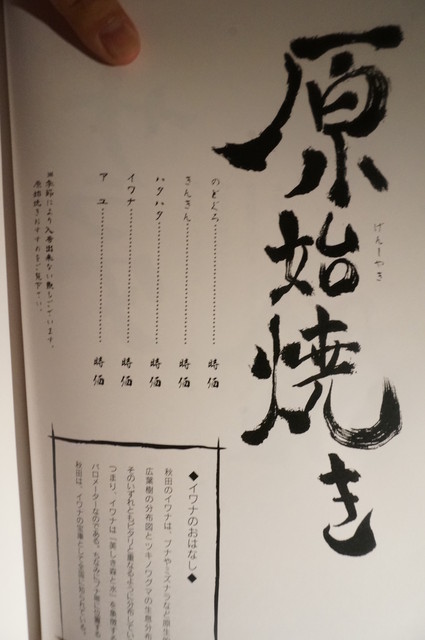 原始焼き
げんしやき
のどぐろ 時価
きんきん 時価
ハタハタ 時価
イワナ 時価
アユ 時価
※季節により入荷出来ない魚もございます。
原始焼きおすすめをご覧下さい。
◆イワナのおはなし◆
秋田のイワナは、ブナやミズナラなど原生
広葉樹の分布図とツキノワグマの生息分布
そのいずれともピタリと重なるように分布してい
つまり、イワナは「美しき森と水」を象徴す
バロメーターなのである。ちなみに
秋田は、イワナの宝庫として全国に知られている。